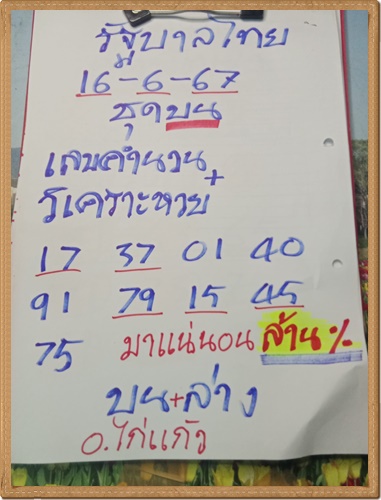 รัฐบาลไทย
16-6-67
ชุดบน
เลขคำนวน+
วิเคราะหวย
17 37 01 40
91 79 15 45
75 มาแน่นอน ล้าน%
บน+ล่าง
อ.ไก่แก้ว